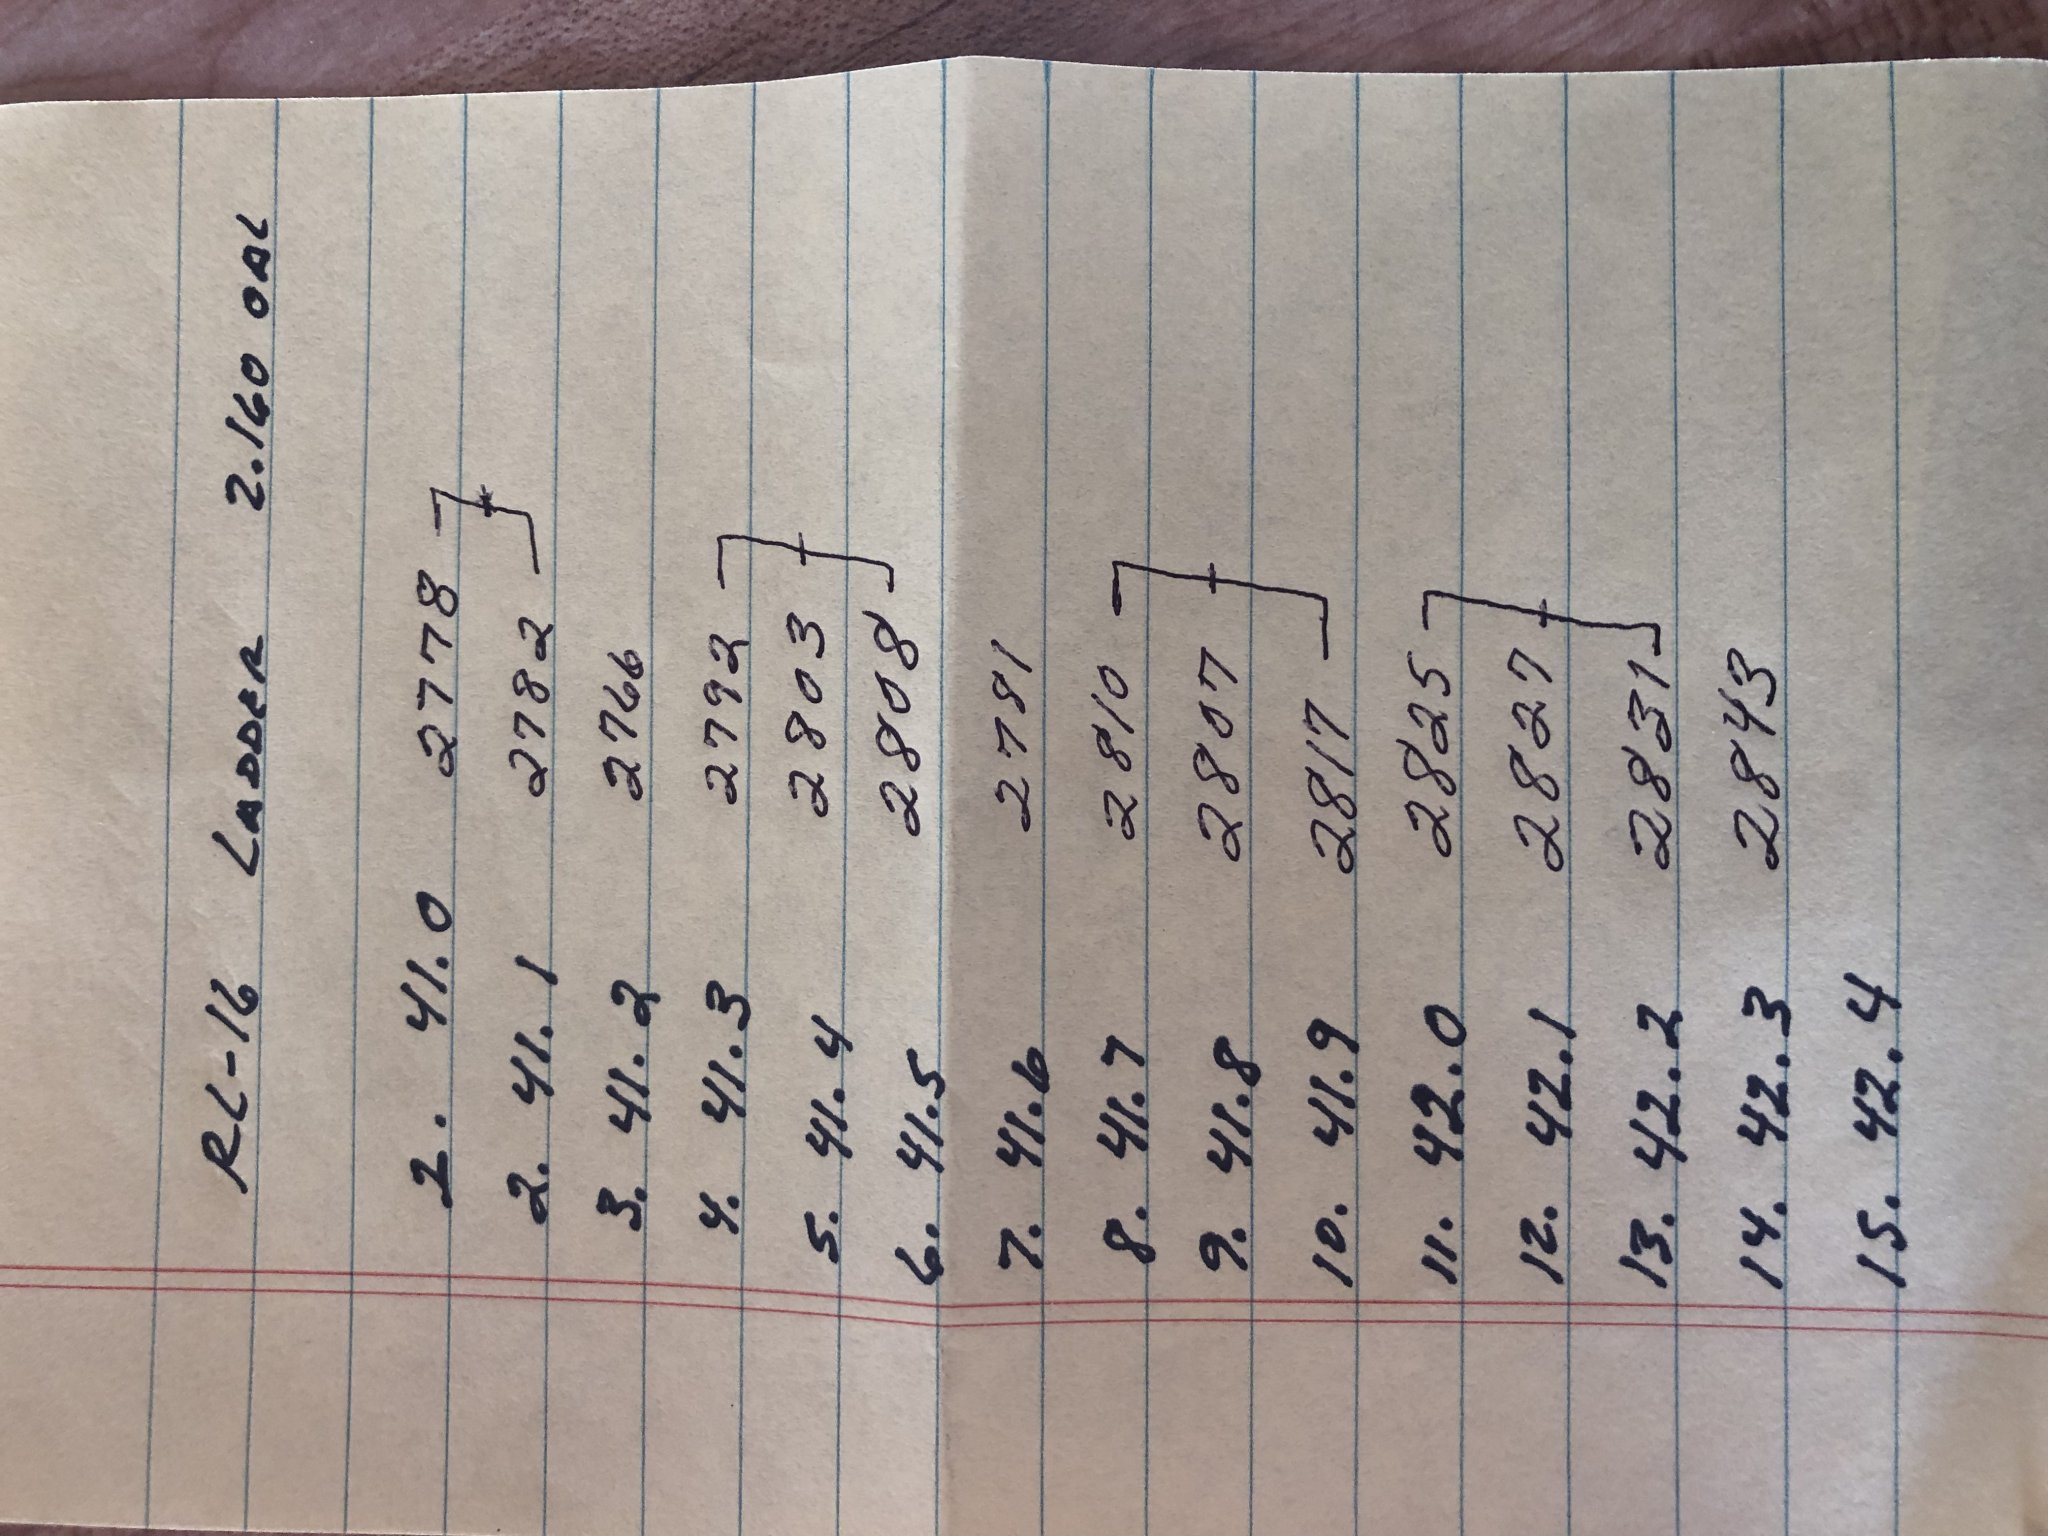 RL-16 LADDER 2.160 OAL
2. 41.0 2778
2. 41.1 2782
3. 41.2 2766
4. 41.3 2792
5. 41.4 2803
6. 41.5 2808
7. 41.6 2781
8. 41.7 2810
9. 41.8 2807
10. 41.9 2817
11. 42.0 2825
12. 42.1 2827
13. 42.2 2831
14. 42.3 2843
15. 42.4